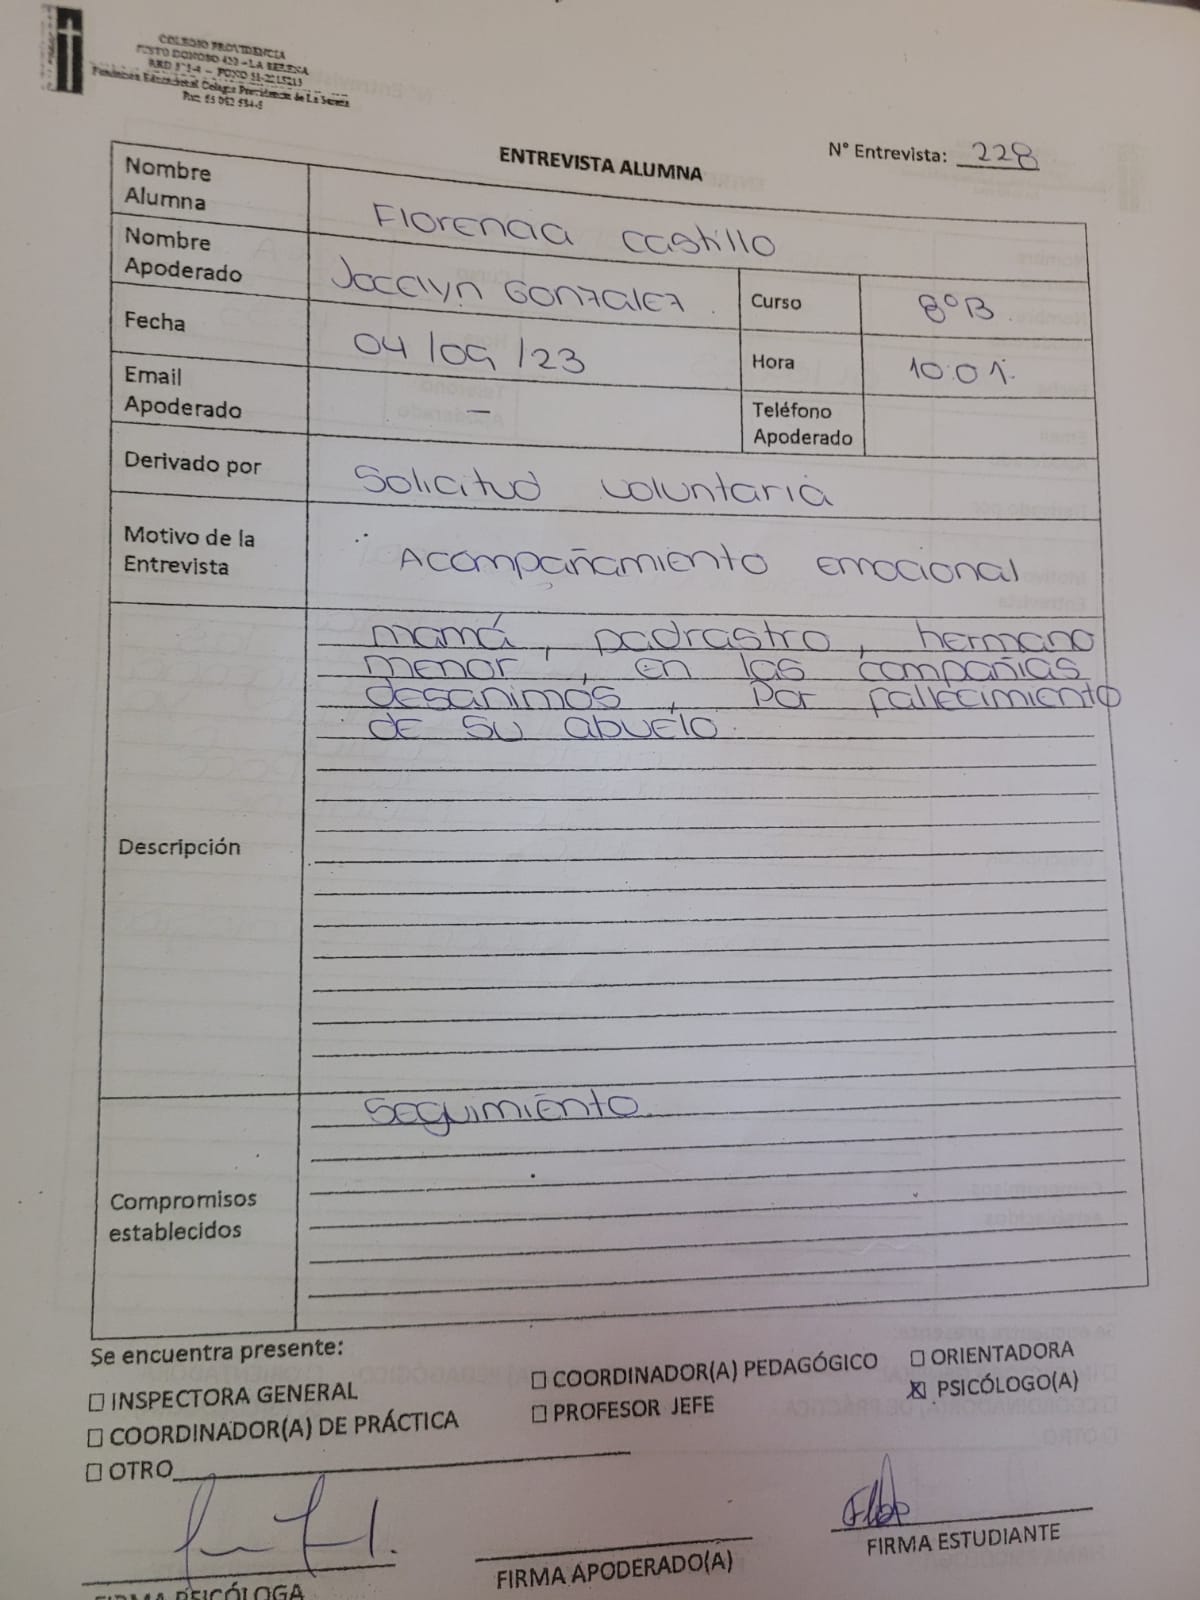 COLEGIO PROVIDENCIA
JUSTO DONOSO 420 - LA SERENA
Fundación Educacional Colegio Providencia de La Serena
ENTREVISTA ALUMNA
N° Entrevista: 228
Nombre Alumna Florencia Castillo
Nombre Apoderado Jocelyn Gonzalez Curso 8°B
Fecha 04/09/23 Hora 10:01
Email Apoderado — Teléfono Apoderado
Derivado por Solicitud voluntaria
Motivo de la Entrevista Acompañamiento emocional
Descripción
mamá, padrastro, hermano
menor, en las compañias
desanimos, Por fallecimiento
de su abuelo.
Compromisos establecidos
Seguimiento
Se encuentra presente:
☐ INSPECTORA GENERAL ☐ COORDINADOR(A) PEDAGÓGICO ☐ ORIENTADORA
☐ COORDINADOR(A) DE PRÁCTICA ☐ PROFESOR JEFE ☒ PSICÓLOGO(A)
☐ OTRO
FIRMA PSICÓLOGA FIRMA APODERADO(A) FIRMA ESTUDIANTE